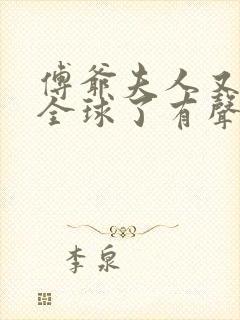 傅爺夫人又
全球了有聲
李泉